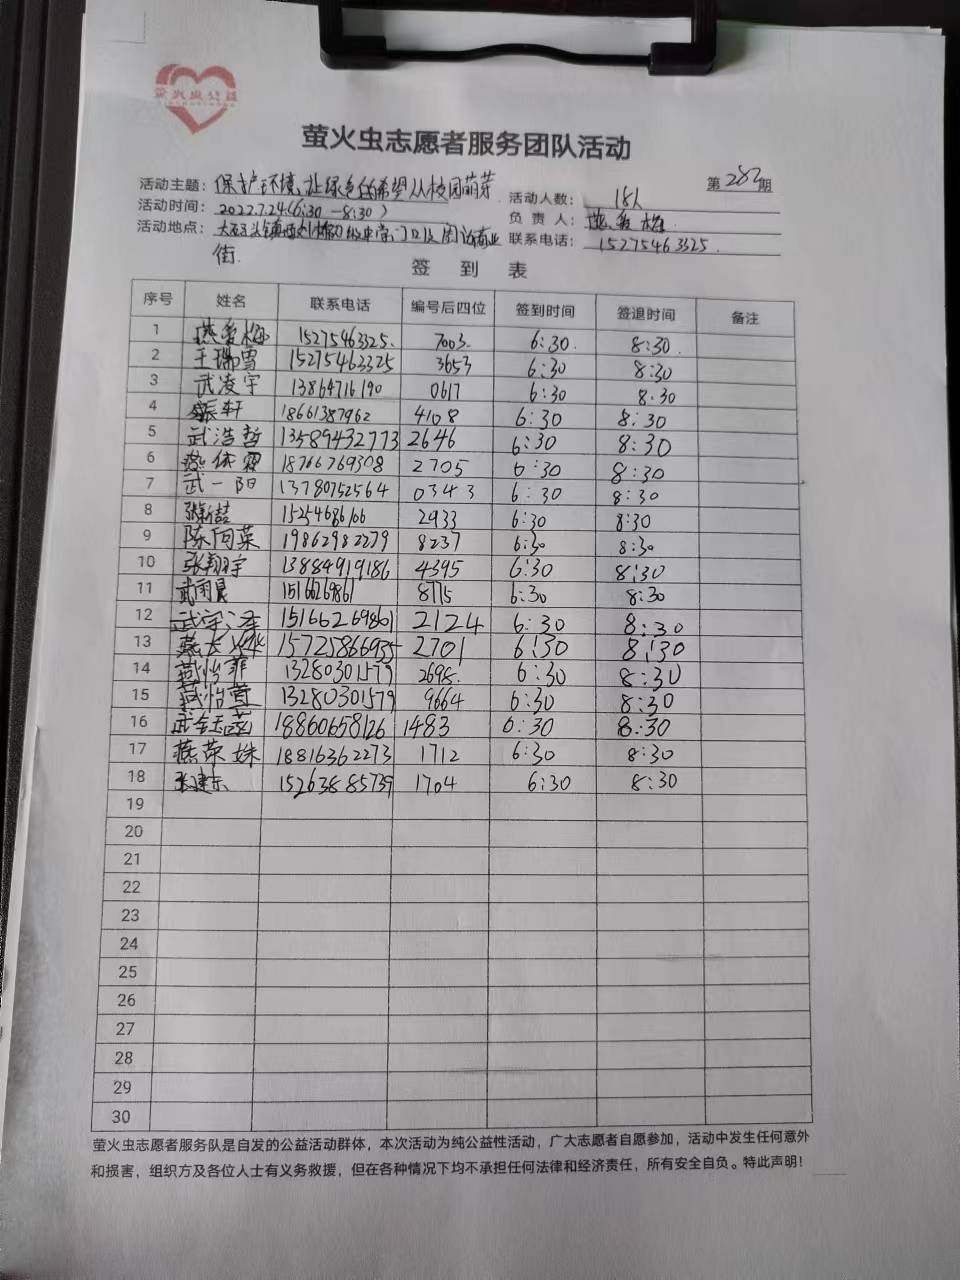 萤火虫公益
萤火虫志愿者服务团队活动
第282期
活动主题：保护环境,让绿色的希望从校园萌芽 活动人数：18人
活动时间：2022.7.24(6:30-8:30) 负责人：燕爱梅
活动地点： 联系电话：15275463325.
街.
签到表
序号 姓名 联系电话 编号后四位 签到时间 签退时间 备注
1 燕爱梅 15275463325. 7003. 6:30. 8:30.
2 王瑞雪 15275463325 3653 6:30 8:30
3 武凌宇 13864716190 0617 6:30 8.30
4 张轩 18661387962 4108 6:30 8:30
5 武浩哲 13589432773 2646 6:30 8:30
6 燕依霖 18766769308 2705 6:30 8:30
7 武一阳 13780752564 0343 6:30 8:30
8 张新喆 15254686166 2933 6:30 8:30
9 陈向荣 19862982279 8237 6:30 8:30
10 张翔宇 13884919186 4395 6:30 8:30
11 武雨晨 15166269861 8715 6:30 8:30
12 武宇泽 15166269861 2124 6:30 8:30
13 燕 15725866935 2701 6:30 8:30
14 武怡菲 13280301579 2698. 6:30 8:30
15 武怡萱 13280301579 9664 6:30 8:30
16 武金玉菡 18860658126 1483 6:30 8:30
17 燕荣姝 18816362273 1712 6:30 8:30
18 张建东 15263885739 1704 6:30 8:30
19
20
21
22
23
24
25
26
27
28
29
30
萤火虫志愿者服务队是自发的公益活动群体，本次活动为纯公益性活动，广大志愿者自愿参加，活动中发生任何意外
和损害，组织方及各位人士有义务救援，但在各种情况下均不承担任何法律和经济责任，所有安全自负。特此声明！